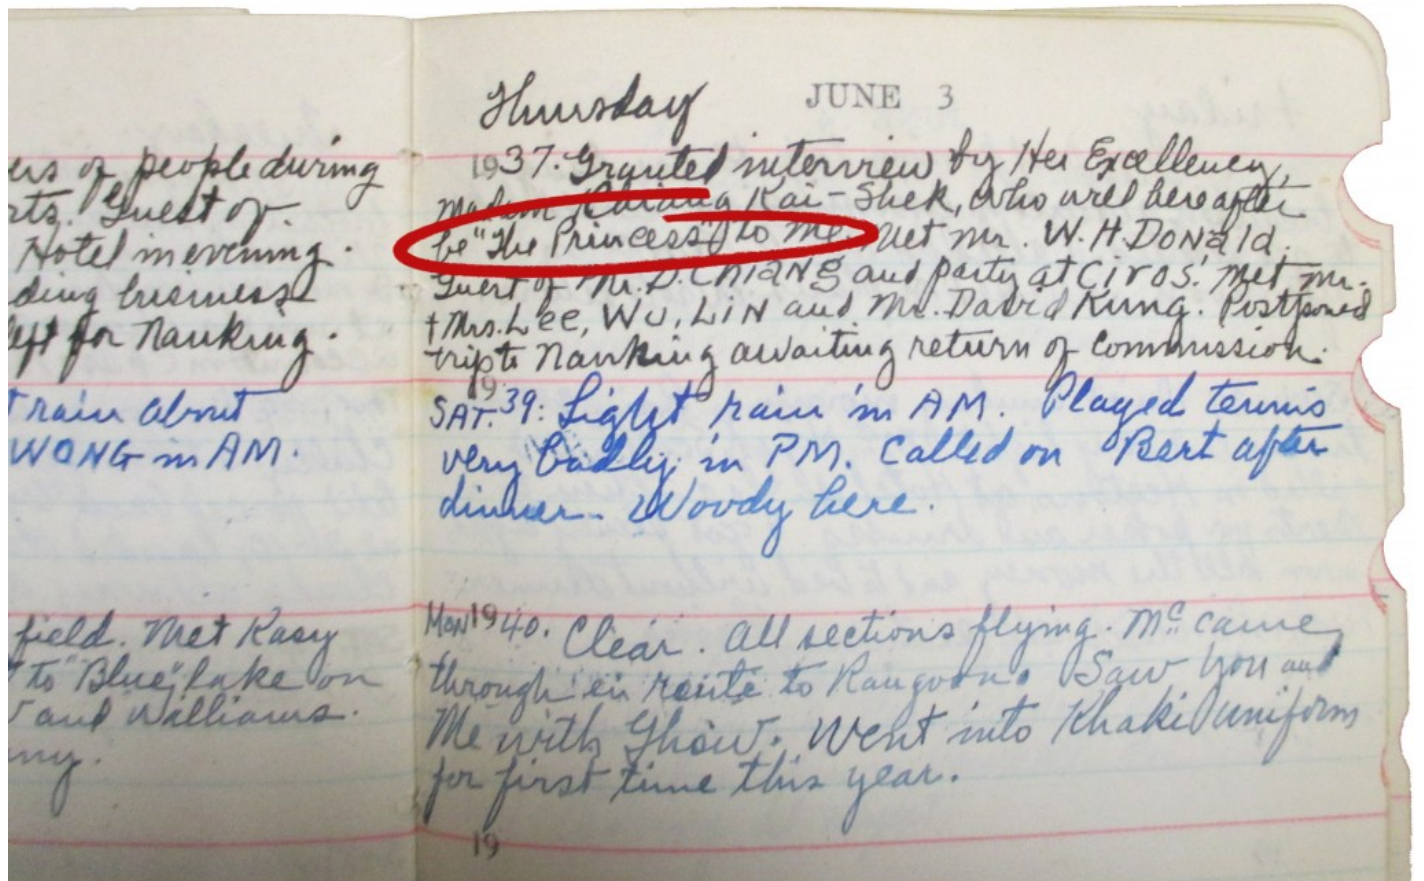 ers of people during
rts. Guest of
Hotel in evening.
ding business
left for Nanking.
t rain about
WONG in AM.
field. Met Kasy
to "Blue" lake on
and Williams.
ny.
Thursday JUNE 3
1937. Granted interview by Her Excellency,
Madam Chiang Kai-Shek, who will hereafter
be "The Princess" to me. Met Mr. W.H. DONALD.
Guest of Mr. D. CHIANG and party at CIROS. Met Mr.
+ Mrs. Lee, WU, LIN and Mr. David Kung. Postponed
trip to Nanking awaiting return of Commission.
19
SAT. 39: Light rain in AM. Played tennis
very badly in PM. Called on Bert after
dinner. Woody here.
MON 1940. Clear. All sections flying. Mc came
through en route to Rangoon. Saw You and
Me with Show. Went into Khaki uniform
for first time this year.
19